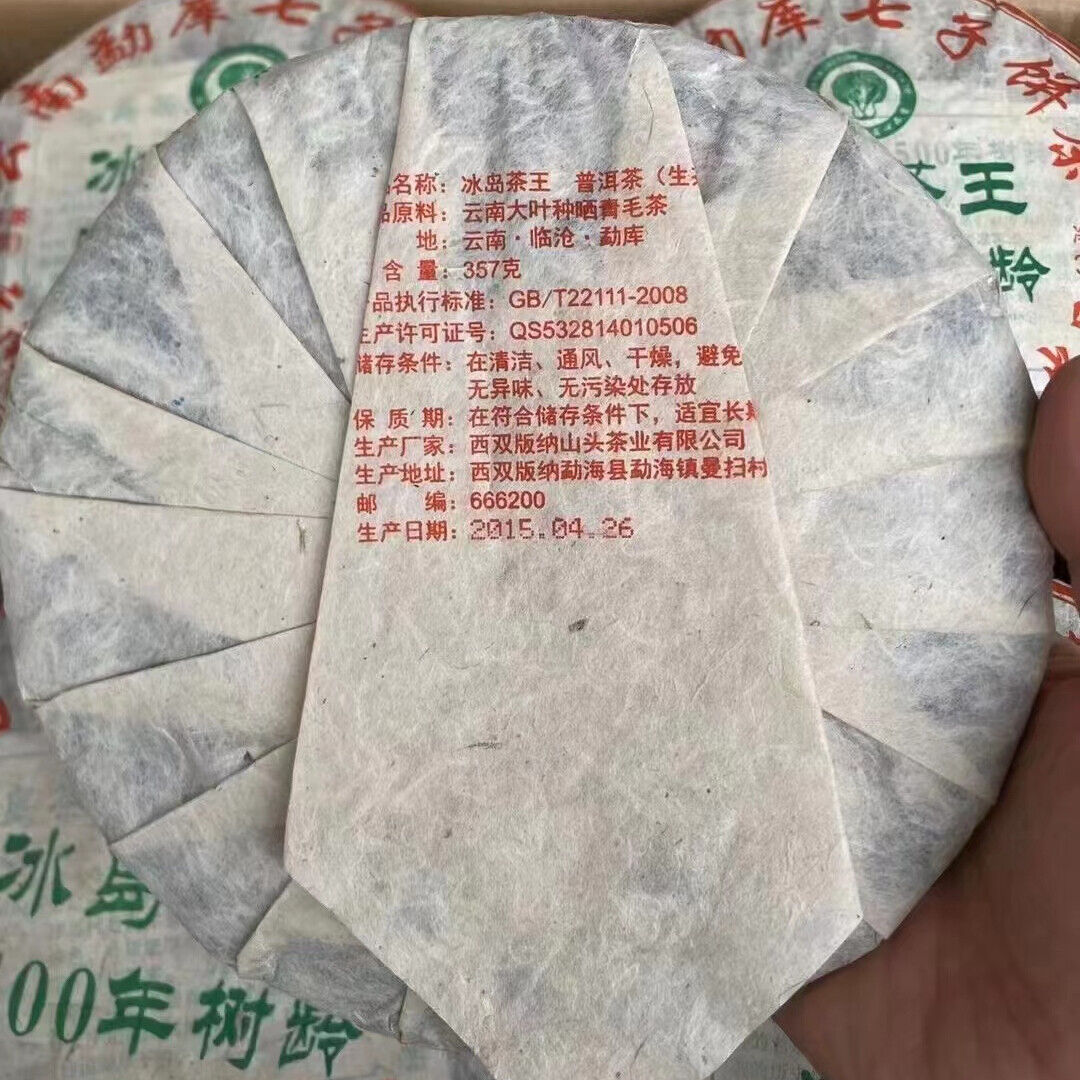 南勐库七子饼
库七子饼茶
冰
茶王
龄
名称：冰岛茶王 普洱茶（生
品原料：云南大叶种晒青毛茶
地：云南·临沧·勐库
含 量：357克
品执行标准：GB/T22111-2008
生产许可证号：QS532814010506
储存条件：在清洁、通风、干燥，避免
无异味、无污染处存放
保 质 期：在符合储存条件下，适宜长期
生产厂家：西双版纳山头茶业有限公司
生产地址：西双版纳勐海县勐海镇曼扫村
邮 编：666200
生产日期：2015.04.26
冰岛
00年树龄